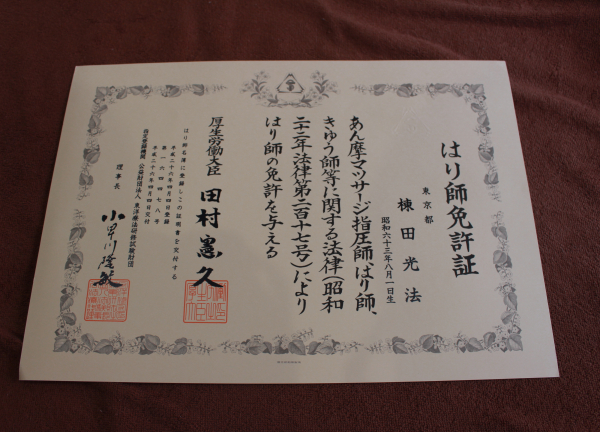 はり師免許証
東京都
棟田光法
昭和六十三年八月一日生
あん摩マツサージ指圧師、はり師、
きゆう師等に関する法律(昭和
二十二年法律第二百十七号)により
はり師の免許を与える
厚生労働大臣 田村憲久
はり師名簿に登録しこの証明書を交付する
平成二十六年四月四日登録
第一六四四七八号
平成二十六年四月四日交付
指定登録機関 公益財団法人 東洋療法研修試験財団
理事長 小早川隆敏